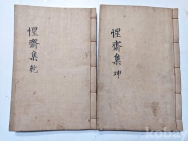 惺齋集
乾
惺齋集
坤
kobay